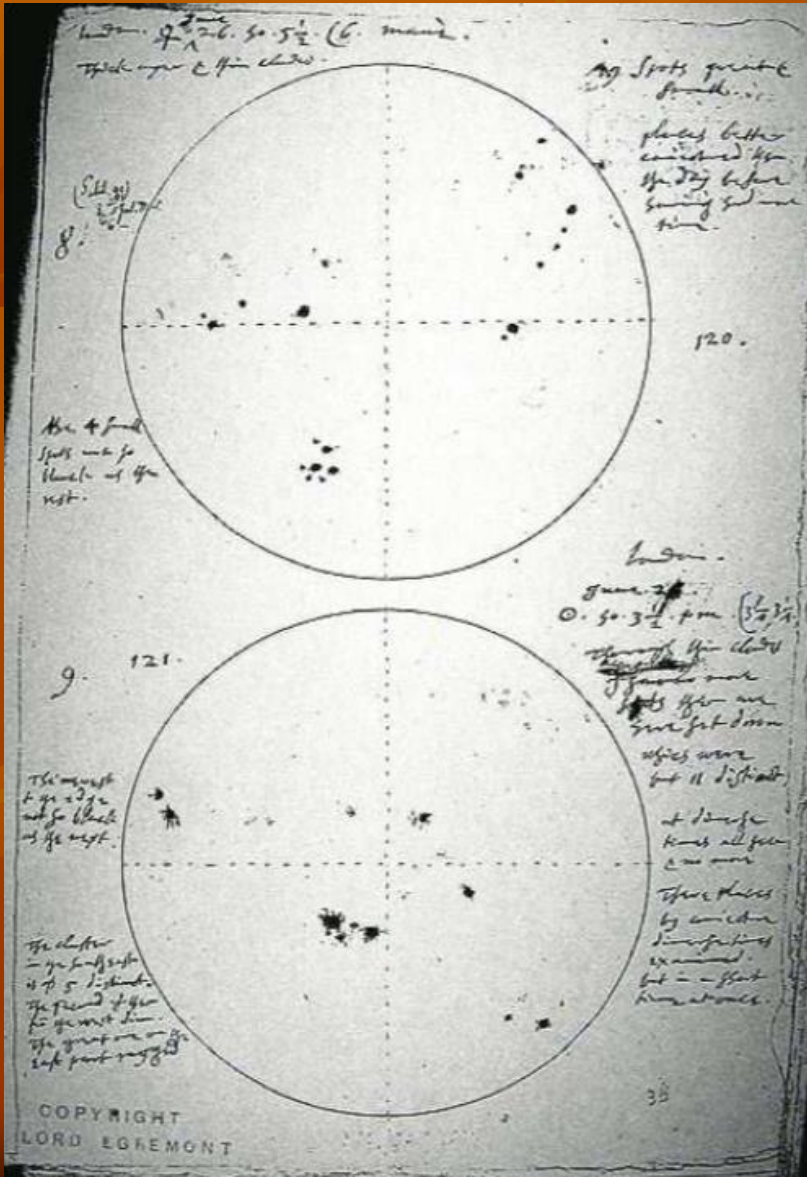 london. ♀ June 26. ho. 5 1/2. (6. mane.
Thick ayer & thin cloudes.
19 Spots great &
small.
places better
considered then
the day before
having had more
time.
8.
120.
The 4 small
spots not so
black as the
rest.
london.
June. 28.
☉. ho. 3 1/2. pm. (3 1/4, 3 3/4.
Through thin cloudes
more
spots then are
here set down
which were
but 11 distinct
at diverse
times all seen
& no more
These places
by
diverse times
examined.
but in a short
time at once.
9.
121.
The nerest
to ye edge
not so black
as the next.
The cluster
in ye south east
is of 5 distinct.
The second of them
to ye west dim.
The great one on the
East part ragged
38
COPYRIGHT
LORD EGREMONT